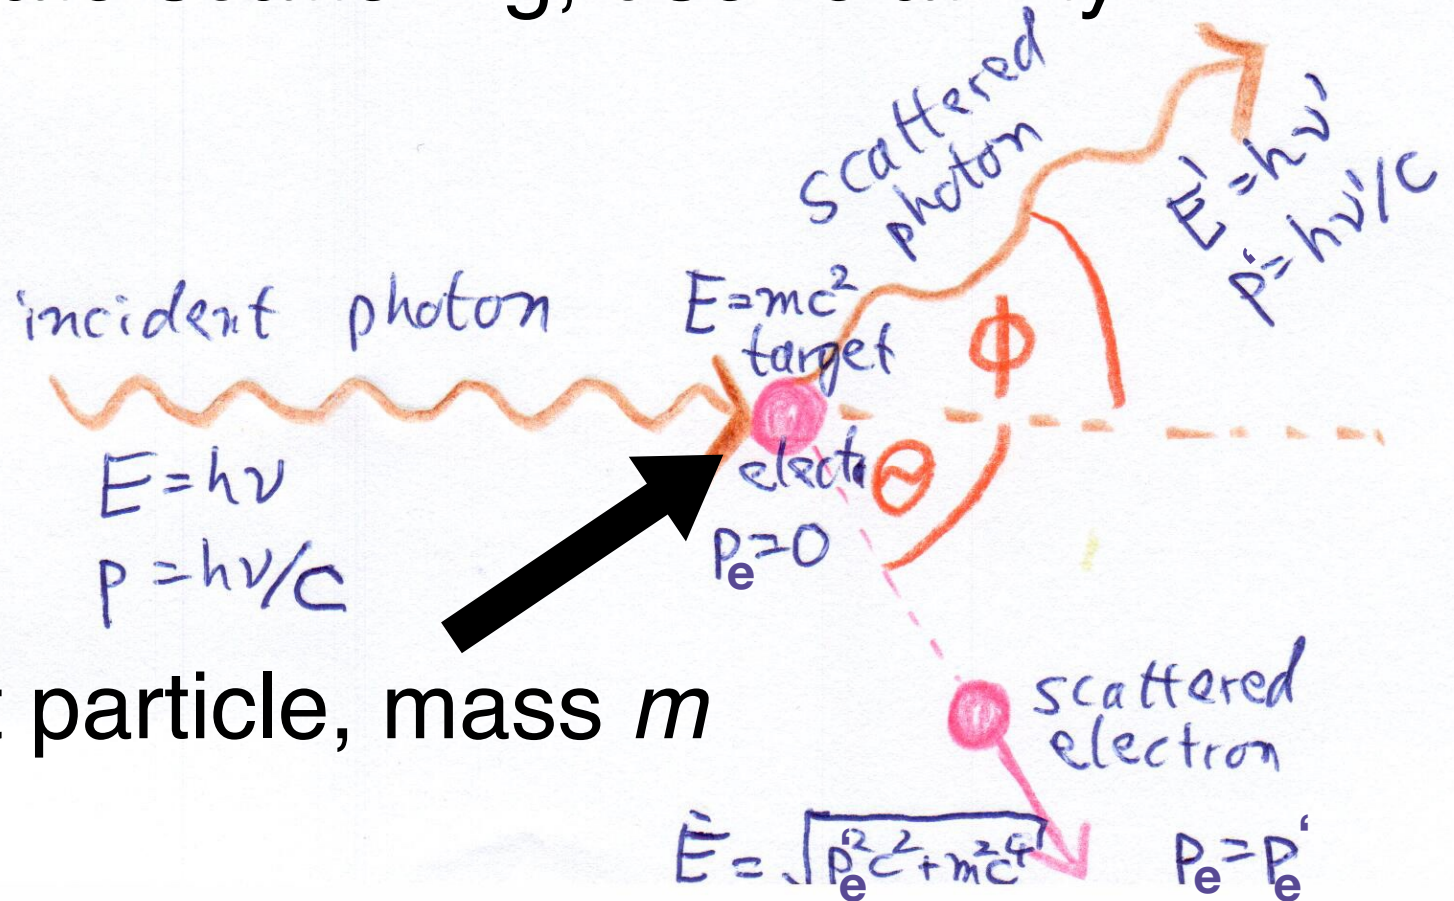 scattered
photon
E'=hν'
p'=hν'/c
incident photon
E=mc²
target
Φ
E=hν
p=hν/c
elect
Θ
pₑ=0
particle, mass m
scattered
electron
E'=√pₑ'²c²+m²c⁴
pₑ=pₑ'